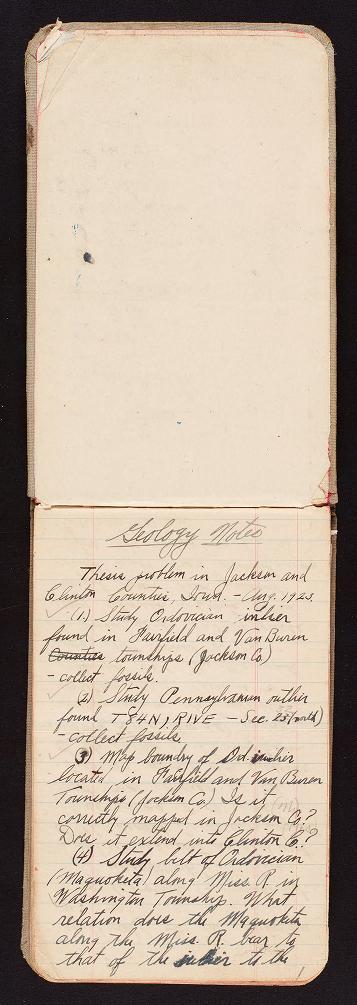 Geology Notes
Thesis problem in Jackson and
Clinton Counties, Iowa. - Aug. 1923.
(1) Study Ordovician inlier
found in Fairfield and Van Buren
Counties townships (Jackson Co)
- collect fossils.
(2) Study Pennsylvanian outlier
found T84N, R1VE - Sec. 23 (north)
- collect fossils.
(3) Map boundry of Ord. inlier
located in Fairfield and Van Buren
Townships (Jackson Co.) Is it
correctly mapped in Jackson Co.?
Does it extend into Clinton C.?
(4) Study belt of Ordovician
(Maquoketa) along Miss. R. in
Washington Township. What
relation does the Maquoketa
along the Miss. R. bear to
that of the inlier to the
1